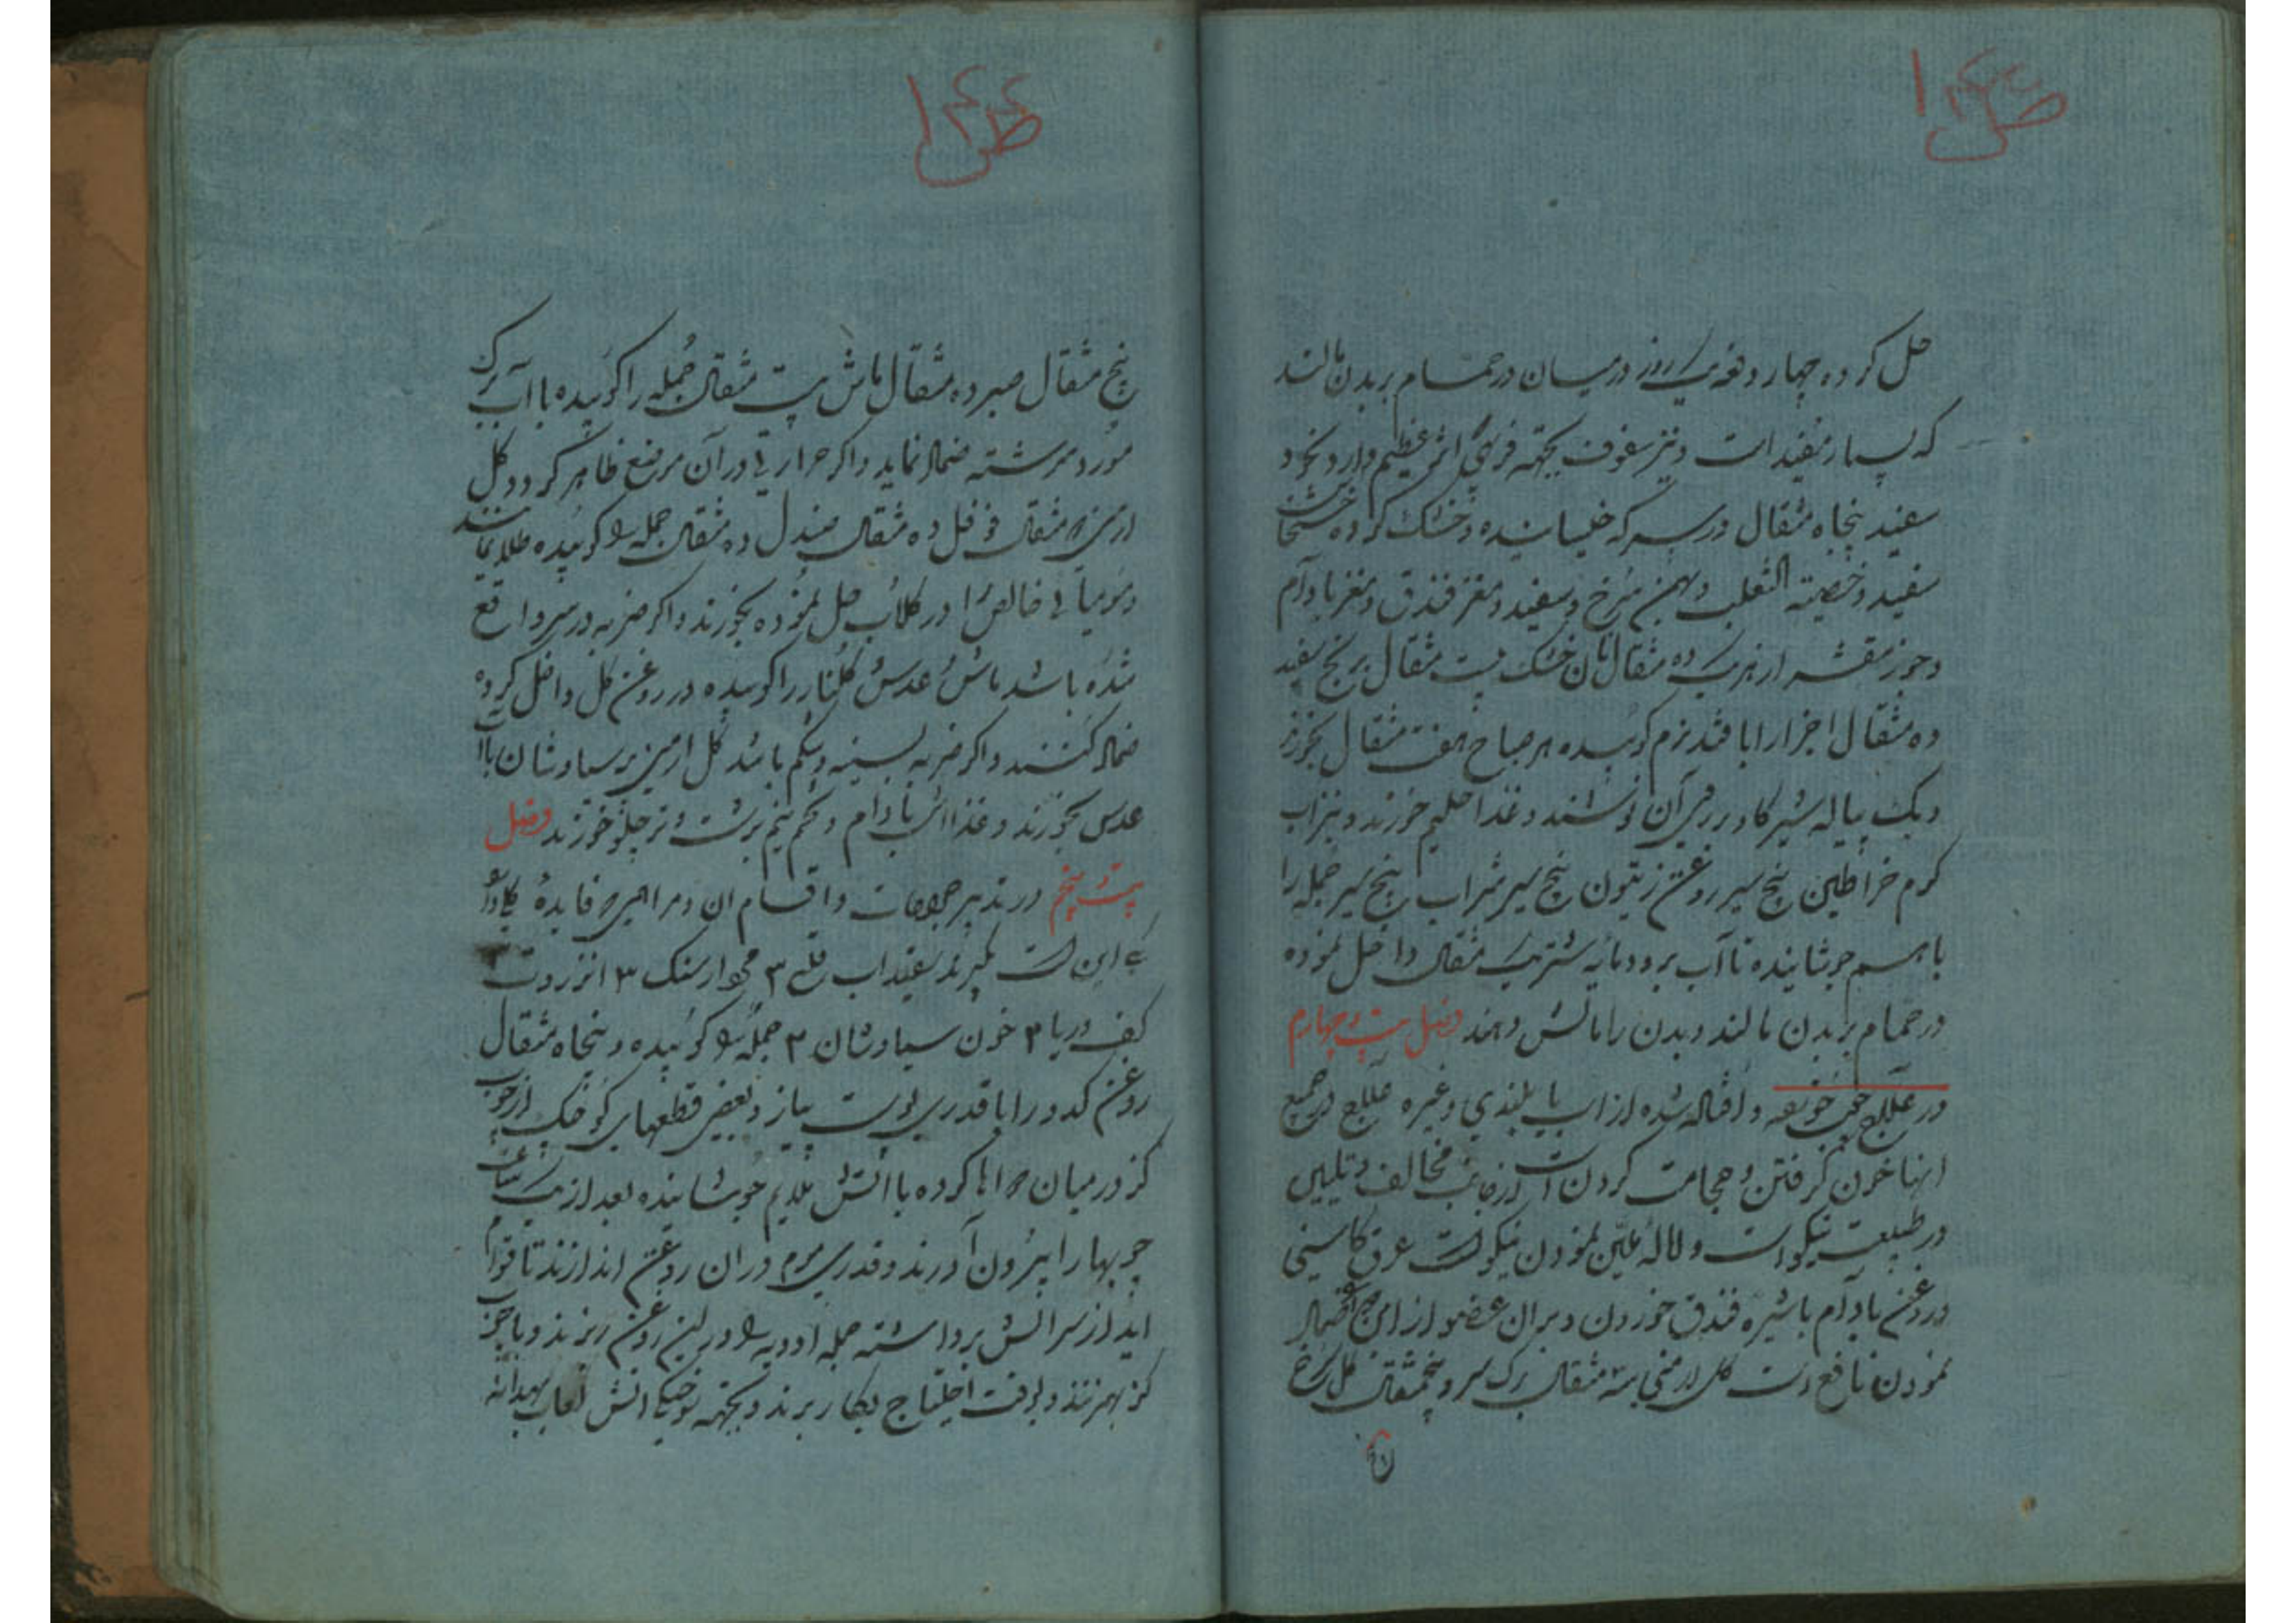 حل کرده چهار دفعه یک روز در میان در حمام بر بدن مالند
که بسیار مفید است و نیز سفوف بجهته فربهی اثر عظیم دارد نخود
سفید پنجاه مثقال در سرکه خیسانیده و خشک کرده خشخاش
سفید و خصیته الثعلب و بهمن سرخ و سفید و مغز فندق و مغز بادام
و جوز مقشر از هر یک ده مثقال نان خشک بیست مثقال برنج سفید
ده مثقال اجزا را با قند نرم کوبیده هر صباح هفت مثقال بخورند
و یک پیاله شیر کاو بر روی آن نوشند و غذا حلیم خورند و نیز اب
کرم خراطین پنج سیر روغن زیتون پنج سیر شراب پنج سیر جمله را
با هم جوشانیده تا آب برود مایه شتر یک مثقال داخل نموده
در حمام بر بدن مالند و بدن را مالش دهند فصل بیست و چهارم
در علاج و افتاده شده از اسب یا بلندی و غیره علاج جمیع
اینها خون کرفتن و حجامت کردن است از جانب مخالف و تلیین
در طبیعت نیکو است و نمودن نیکو است عرق کاسنی
و روغن بادام با شیره فندق خوردن و بران عضو از این ضماد
نمودن نافع است کل ارمنی سه مثقال برک سرو پنجمثقال کل سرخ
پنج مثقال صبر ده مثقال ماش بیست مثقال جمله را کوبیده با آب برک
مورد سرشته ضماد نماید و اکر حرارتی در آن موضع ظاهر کردد کل
ارمنی مثقال فوفل ده مثقال صندل ده مثقال جمله را کوبیده طلا نمایند
و مومیائی خالص را در کلاب حل نموده بخورند و اکر ضربه در سر واقع
شده باشد ماش عدس کلنار را کوبیده در روغن کل داخل کرده
ضماد کنند و اکر ضربه بسینه و شکم باشد کل ارمنی پر سیاوشان با
عدس بخورند و غذا اش بادام و تخم نیم برشت و نرم چلو خورند فصل
بیست و پنجم در تدبیر جراحات و اقسام ان و مراهم فایده
این است بکیرند سفیداب قلع ۳ مردارسنک ۳ انزروت
کف دریا ۳ خون سیاوشان ۳ جمله را کوبیده و پنجاه مثقال
روغن کدو را با قدری پوست پیاز و بعضی قطعهای کوچک از چوب
کز در میان رها کرده با آتش ملایم جوشانیده بعد از یک ساعت
چوبها را بیرون آورند و قدری موم در ان روغن اندازند تا قوام
اید از سر آتش برداشته جمله ادویه را در این روغن ریزند و با چوب
کز بهم زنند و بوقت احتیاج بکار برند و بجهته سوختکی آتش لعاب بهدانه